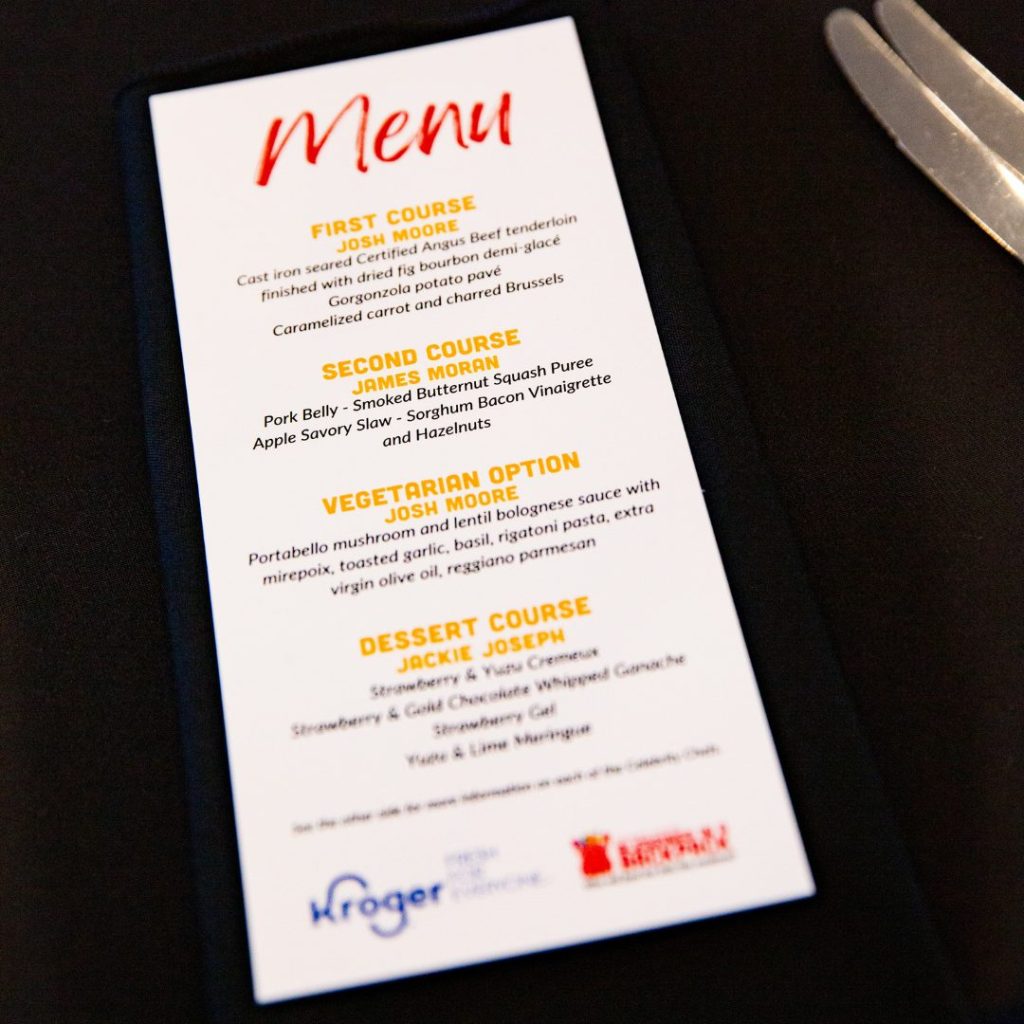 Menu
FIRST COURSE
JOSH MOORE
Cast iron seared Certified Angus Beef tenderloin
finished with dried fig bourbon demi-glacé
Gorgonzola potato pavé
Caramelized carrot and charred Brussels
SECOND COURSE
JAMES MORAN
Pork Belly - Smoked Butternut Squash Puree
Apple Savory Slaw - Sorghum Bacon Vinaigrette
and Hazelnuts
VEGETARIAN OPTION
JOSH MOORE
Portabello mushroom and lentil bolognese sauce with
mirepoix, toasted garlic, basil, rigatoni pasta, extra
virgin olive oil, reggiano parmesan
DESSERT COURSE
JACKIE JOSEPH
Strawberry & Yuzu Cremeux
Strawberry & Gold Chocolate Whipped Ganache
Strawberry Gel
Yuzu & Lime Meringue
See the other side for more information on each of the Celebrity Chefs
Kroger
FRESH
FOR
EVERYONE